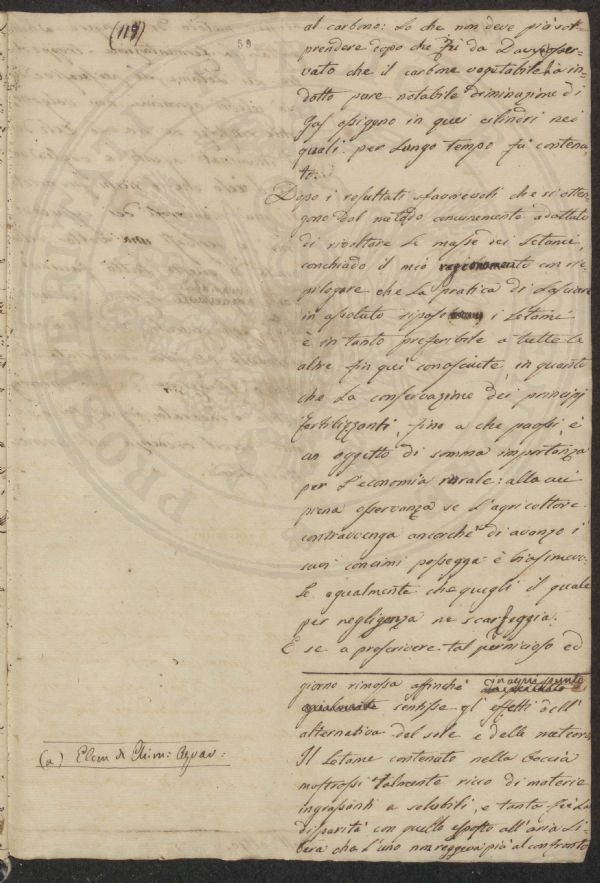 (119)
59
al carbone: Lo che non deve più sor-
prendere dopo che fù da Davy osser-
vato che il carbone vegetabile ha in-
dotto pure notabile diminuzione di
Gas ossigeno in quei cilindri nei
quali per lungo tempo fù contenu-
to:
Dopo i resultati sfavorevoli che si otten-
gono dal metodo comunemente adottato
di rivoltare le masse dei Letami,
conchiudo il mio ragionamento con rie-
pilogare che la pratica di lasciare
in assoluto riposo i Letami
è in tanto preferibile a tutte le
altre fin quì conosciute in quanto
che la conservazione dei principj
fertilizzanti, fino a che puossi, è
un oggetto di somma importanza
per l'economia rurale: alla cui
piena osservanza se l'agricoltore
contravvenga ancorchè di avanzo i
suoi concimi possegga è biasimevo-
le egualmente che quegli il quale
per negligenza ne scarseggia.
E se a proscrivere tal pernicioso ed
giorno rimossa affinchè in ogni punto
sentisse gl' effetti dell'
alternativa del sole e delle meteore
Il Letame contenuto nella boccia
mostrossi talmente ricco di materie
ingrassanti e solubili, e tanta fù la
disparità con quello esposto all'aria li-
bera che l'uno non reggeva più al confronto
(a) Elem di Chim: Agrar: